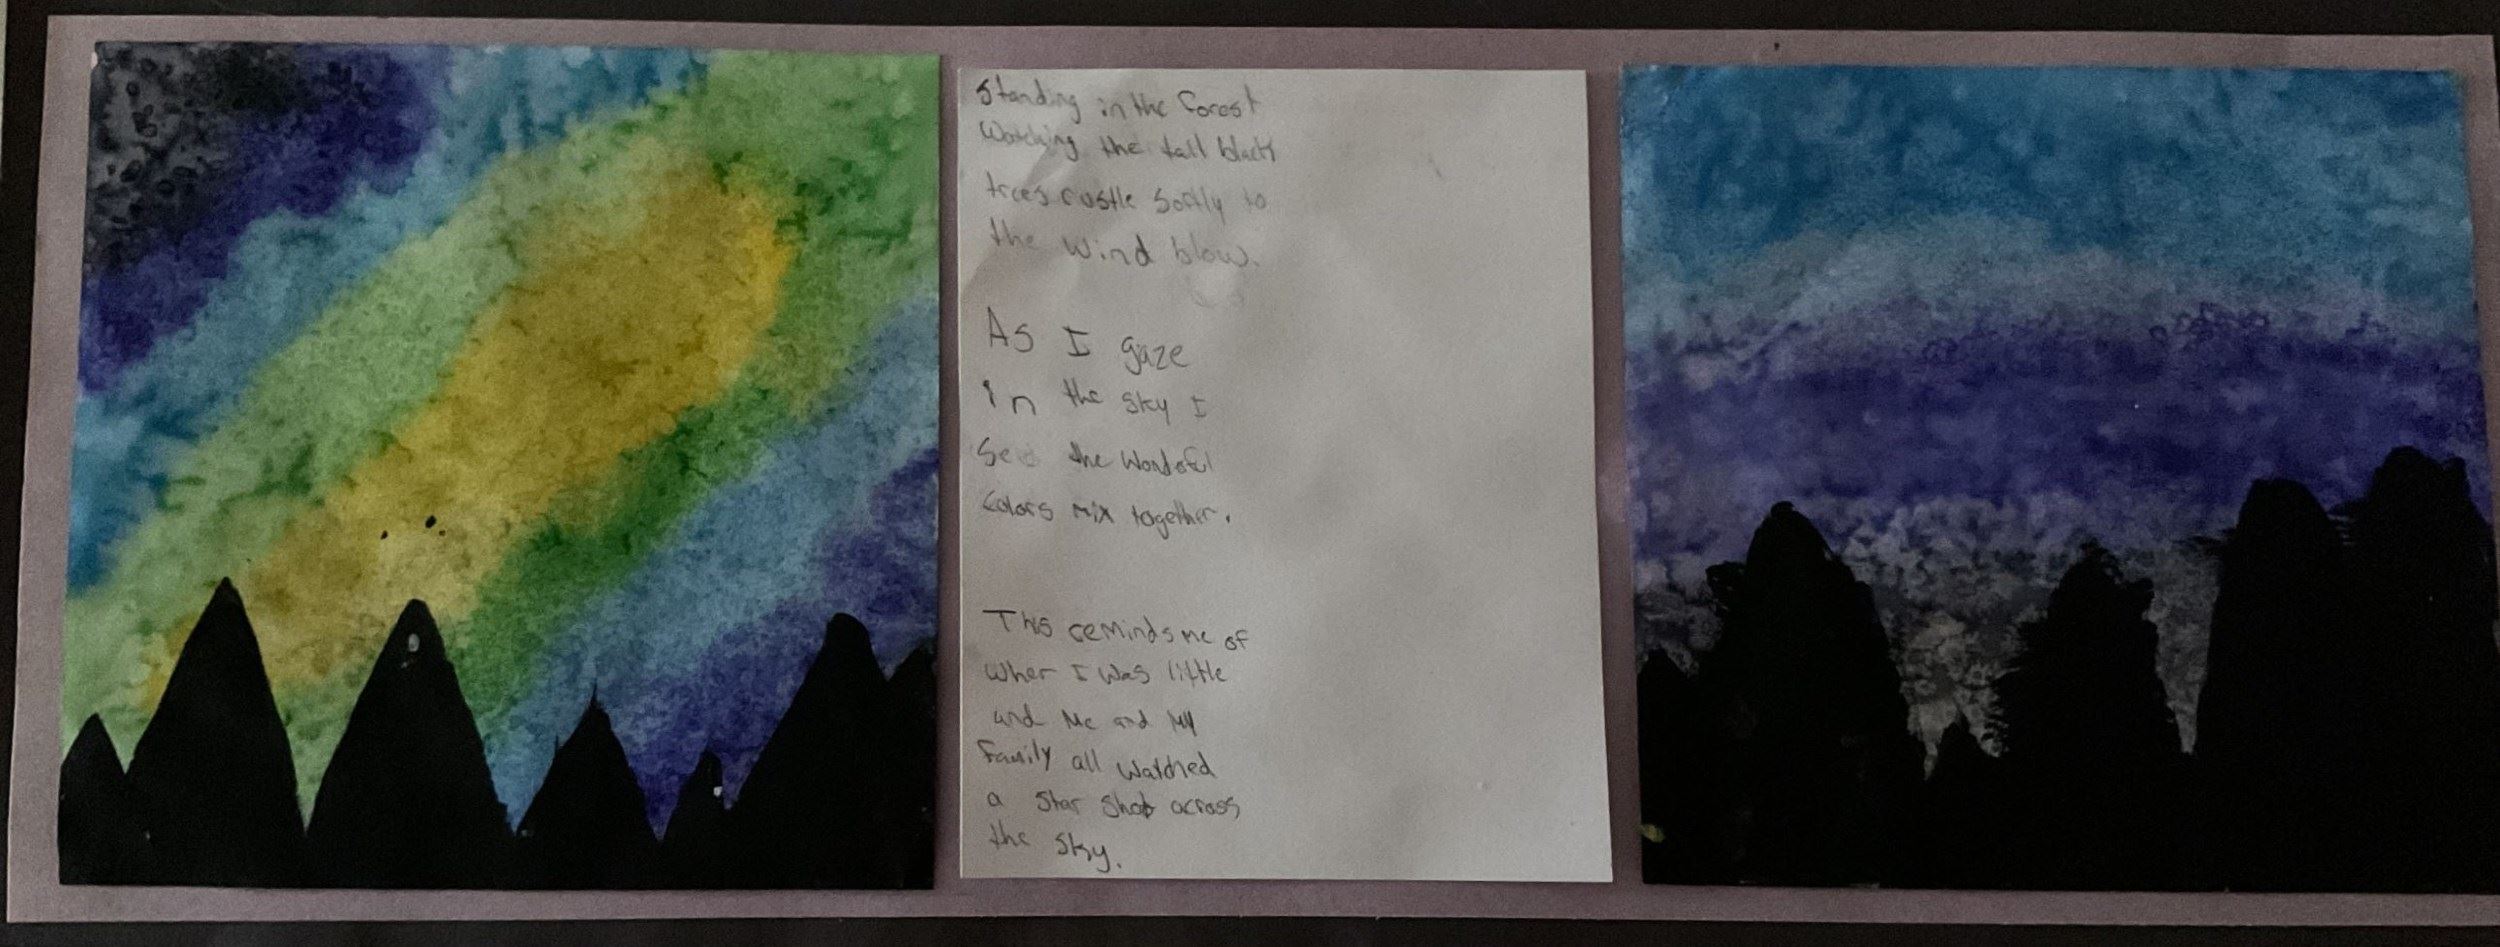 Standing in the forest
Watching the tall black
trees rustle softly to
the wind blow.
As I gaze
in the sky I
the Wondeful
colors mix together.
This reminds me of
when I was little
and Me and My
family all watched
a star shot across
the sky.